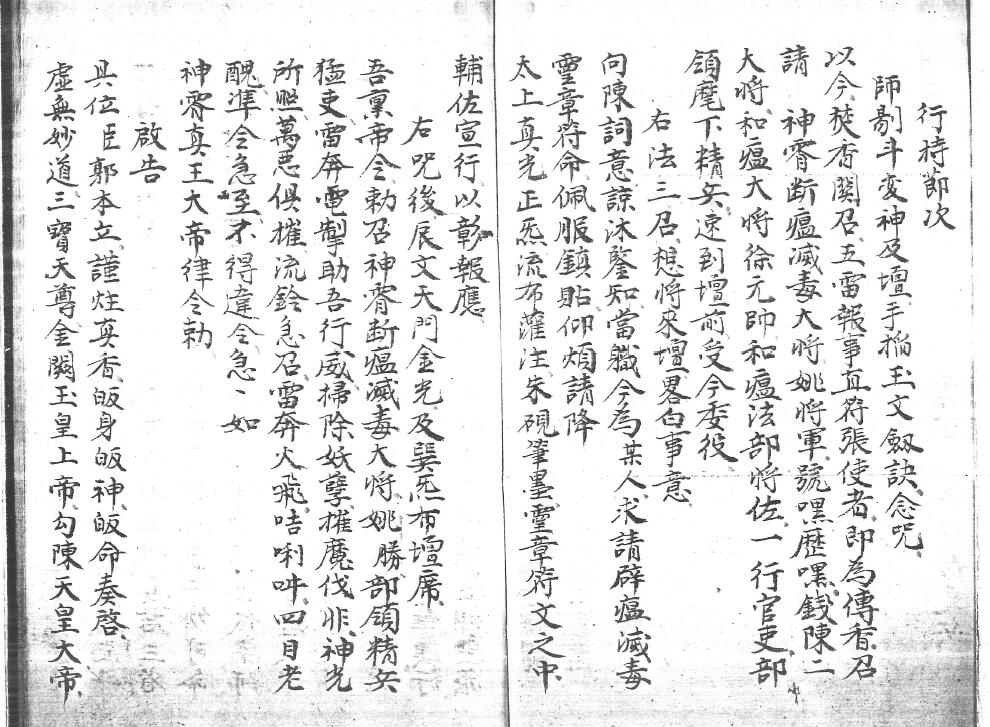 行持節次
師剔斗变神及壇手搯玉文劔訣念咒
以今焚香関召五雷報事直符張使者即為傳香召
請　神霄断瘟滅毒大将姚将軍號嘿歷嘿錢陳二
大将和瘟大将徐元帥和瘟法部将佐一行官吏部
領麾下精兵速到壇前受今委役
右法三召想将來壇畧白事意
向陳詞意諒沐鑒知當職今為某人求請辟瘟滅毒
霊章符命佩服鎮貼仰煩請降
太上真光正炁流布灌注朱硯筆墨霊章符文之中
輔佐宣行以彰報應
右咒後辰文天門金光及巽炁布壇席
吾稟帝令勅召神霄断瘟滅毒大将姚勝部領精兵
猛吏雷奔電掣助吾行威掃除妖孽摧魔伐非神光
所照萬惡俱摧流鈴急召雷奔火飛咭唎吽四目老
醜準令急至不得違令急丶如
神霄真王大帝律令勅
啟告
具位臣郭本立謹炷真香皈身皈神皈命奏啓
虛無妙道三寶天尊金闕玉皇上帝勾陳天皇大帝